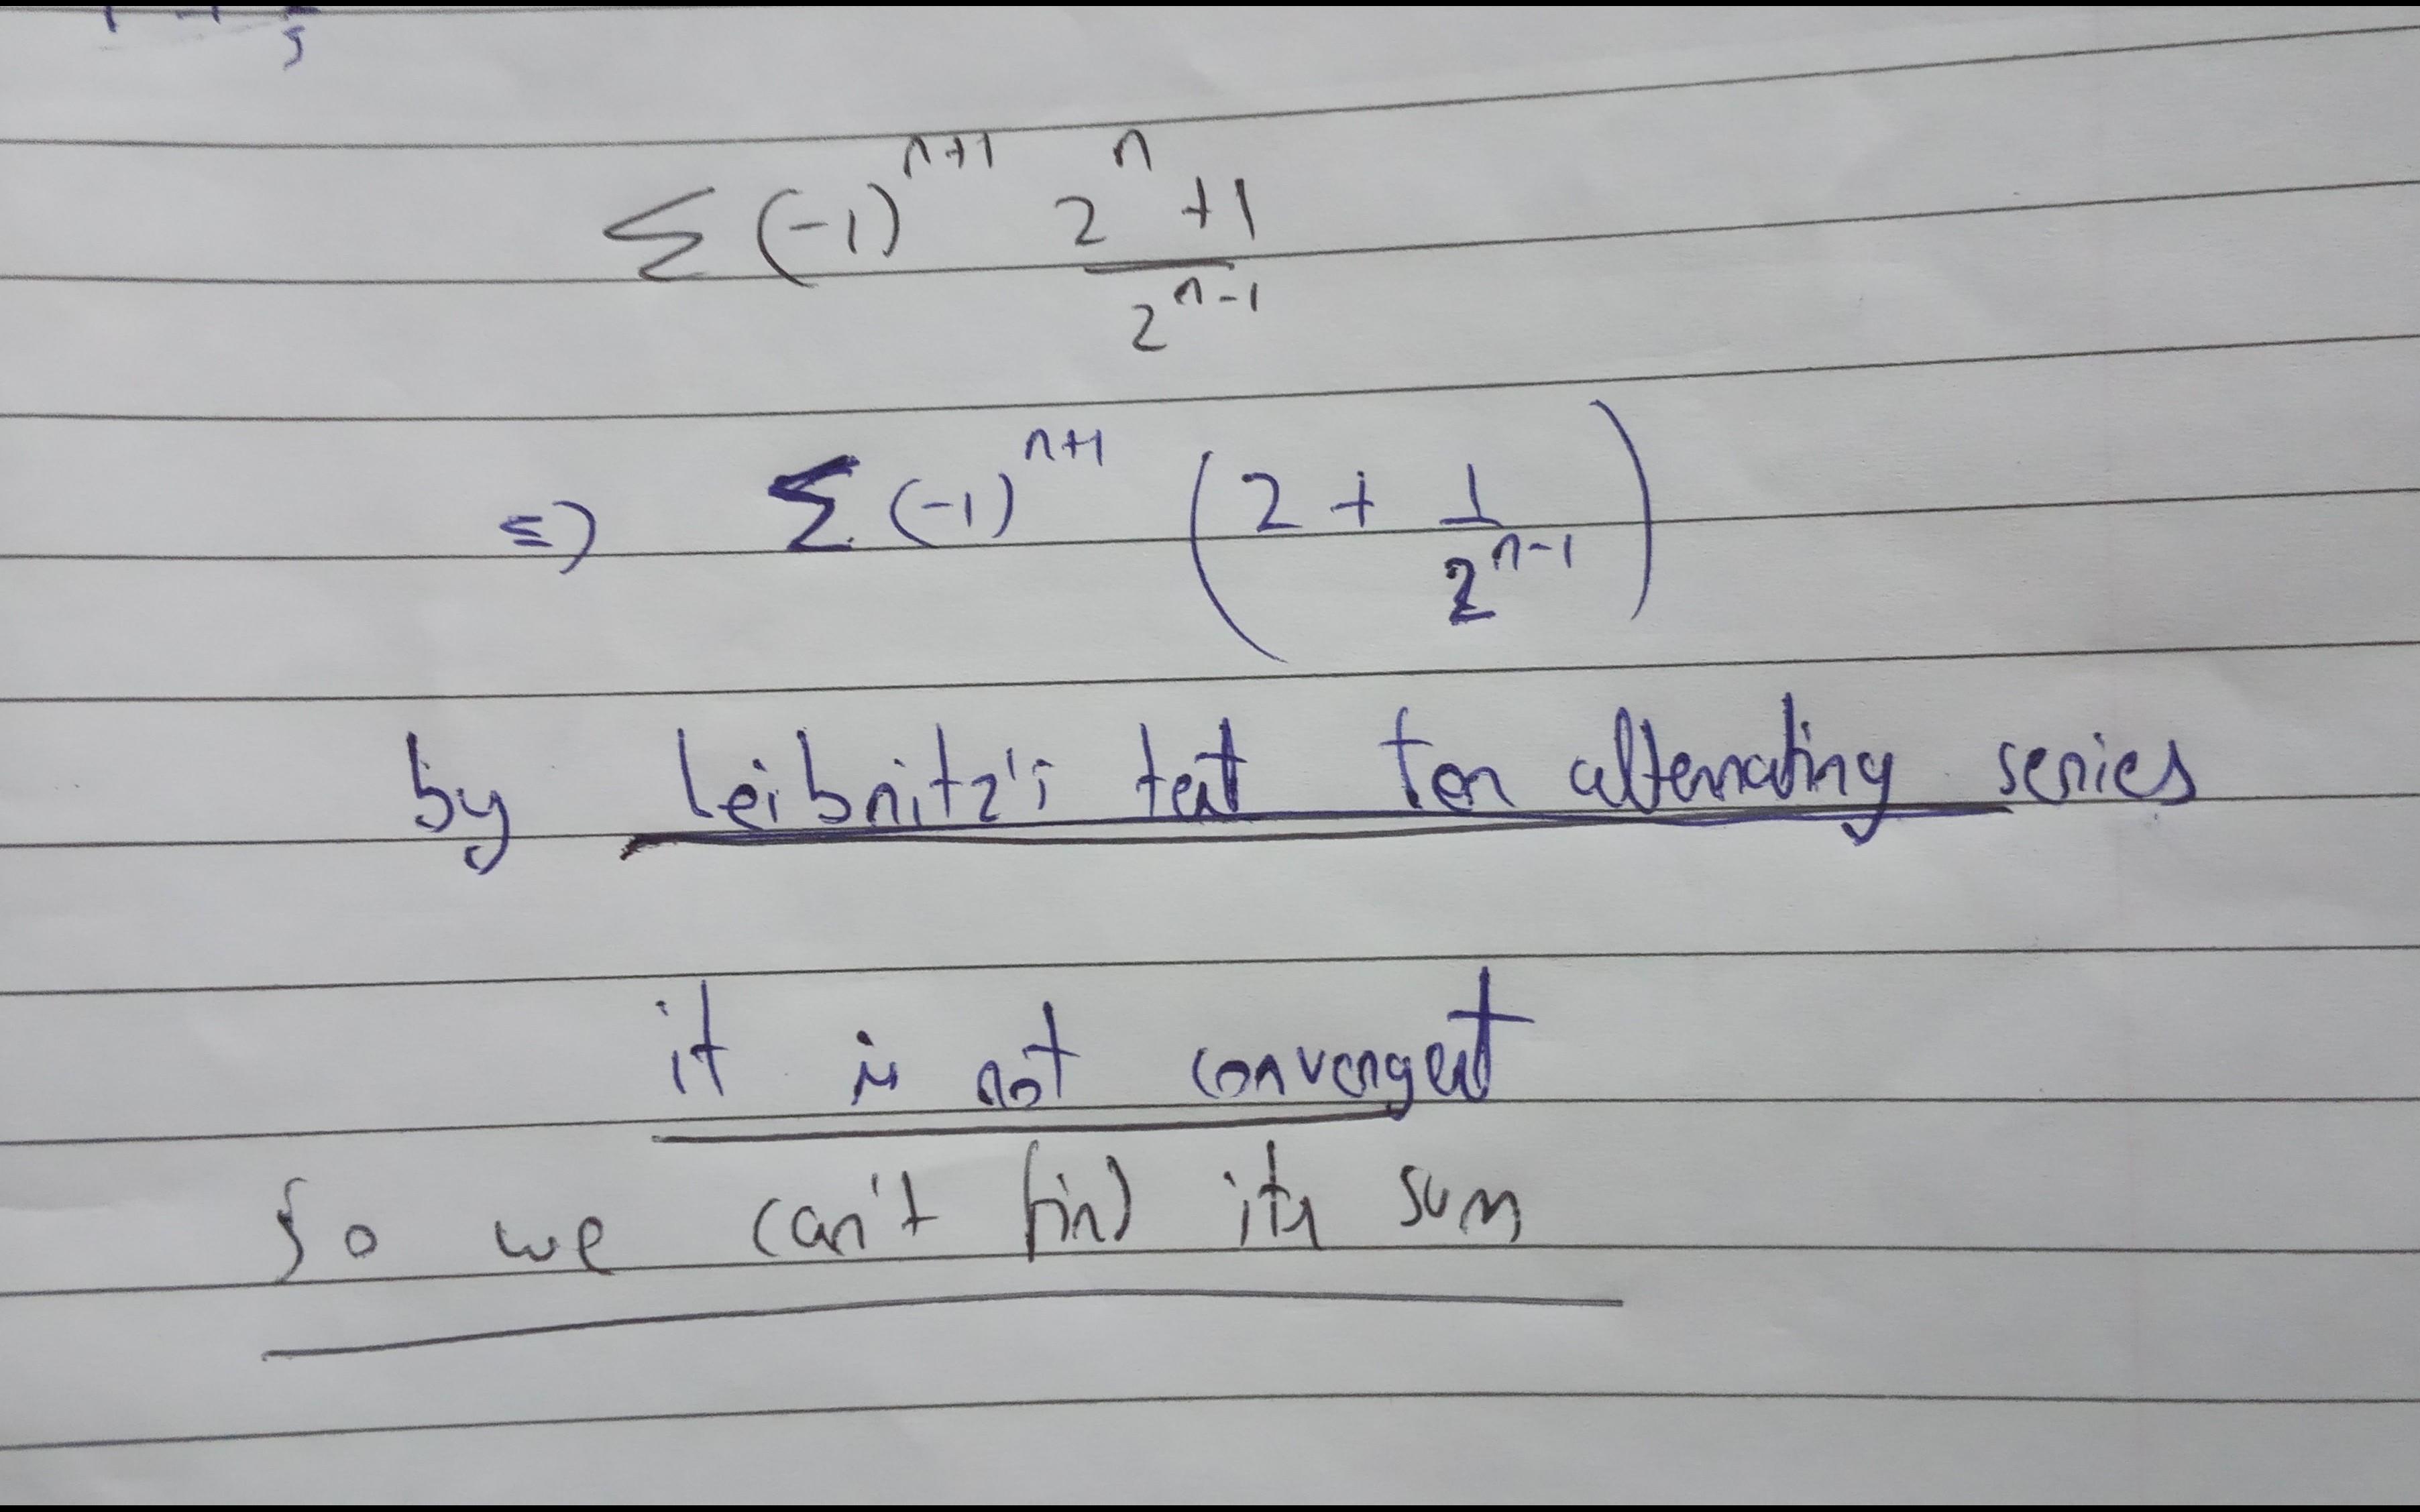 Σ (-1)^{n+1} \frac{2^n +1}{2^{n-1}}
⇒ Σ (-1)^{n+1} (2 + \frac{1}{2^{n-1}})
by Leibnitz's test for alternating series
it is not convergent
So we can't find its sum